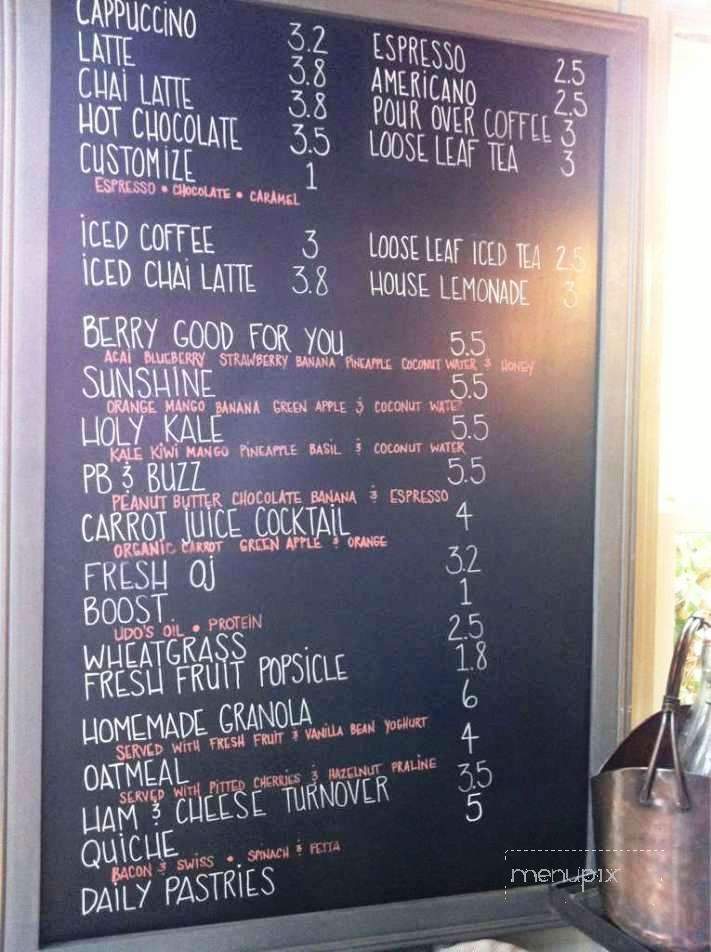 CAPPUCCINO 3.2
LATTE 3.8
CHAI LATTE 3.8
HOT CHOCOLATE 3.5
CUSTOMIZE 1
ESPRESSO • CHOCOLATE • CARAMEL
ESPRESSO 2.5
AMERICANO 2.5
POUR OVER COFFEE 3
LOOSE LEAF TEA 3
ICED COFFEE 3
ICED CHAI LATTE 3.8
LOOSE LEAF ICED TEA 2.5
HOUSE LEMONADE 3
BERRY GOOD FOR YOU 5.5
ACAI BLUEBERRY STRAWBERRY BANANA PINEAPPLE COCONUT WATER & HONEY
SUNSHINE 5.5
ORANGE MANGO BANANA GREEN APPLE & COCONUT WATER
HOLY KALE 5.5
KALE KIWI MANGO PINEAPPLE BASIL & COCONUT WATER
PB & BUZZ 5.5
PEANUT BUTTER CHOCOLATE BANANA & ESPRESSO
CARROT JUICE COCKTAIL 4
ORGANIC CARROT GREEN APPLE & ORANGE
FRESH OJ 3.2
BOOST 1
UDO'S OIL • PROTEIN
WHEATGRASS 2.5
FRESH FRUIT POPSICLE 1.8
HOMEMADE GRANOLA 6
SERVED WITH FRESH FRUIT & VANILLA BEAN YOGHURT
OATMEAL 4
SERVED WITH PITTED CHERRIES & HAZELNUT PRALINE
HAM & CHEESE TURNOVER 3.5
QUICHE 5
BACON & SWISS • SPINACH & FETTA
DAILY PASTRIES
menupix